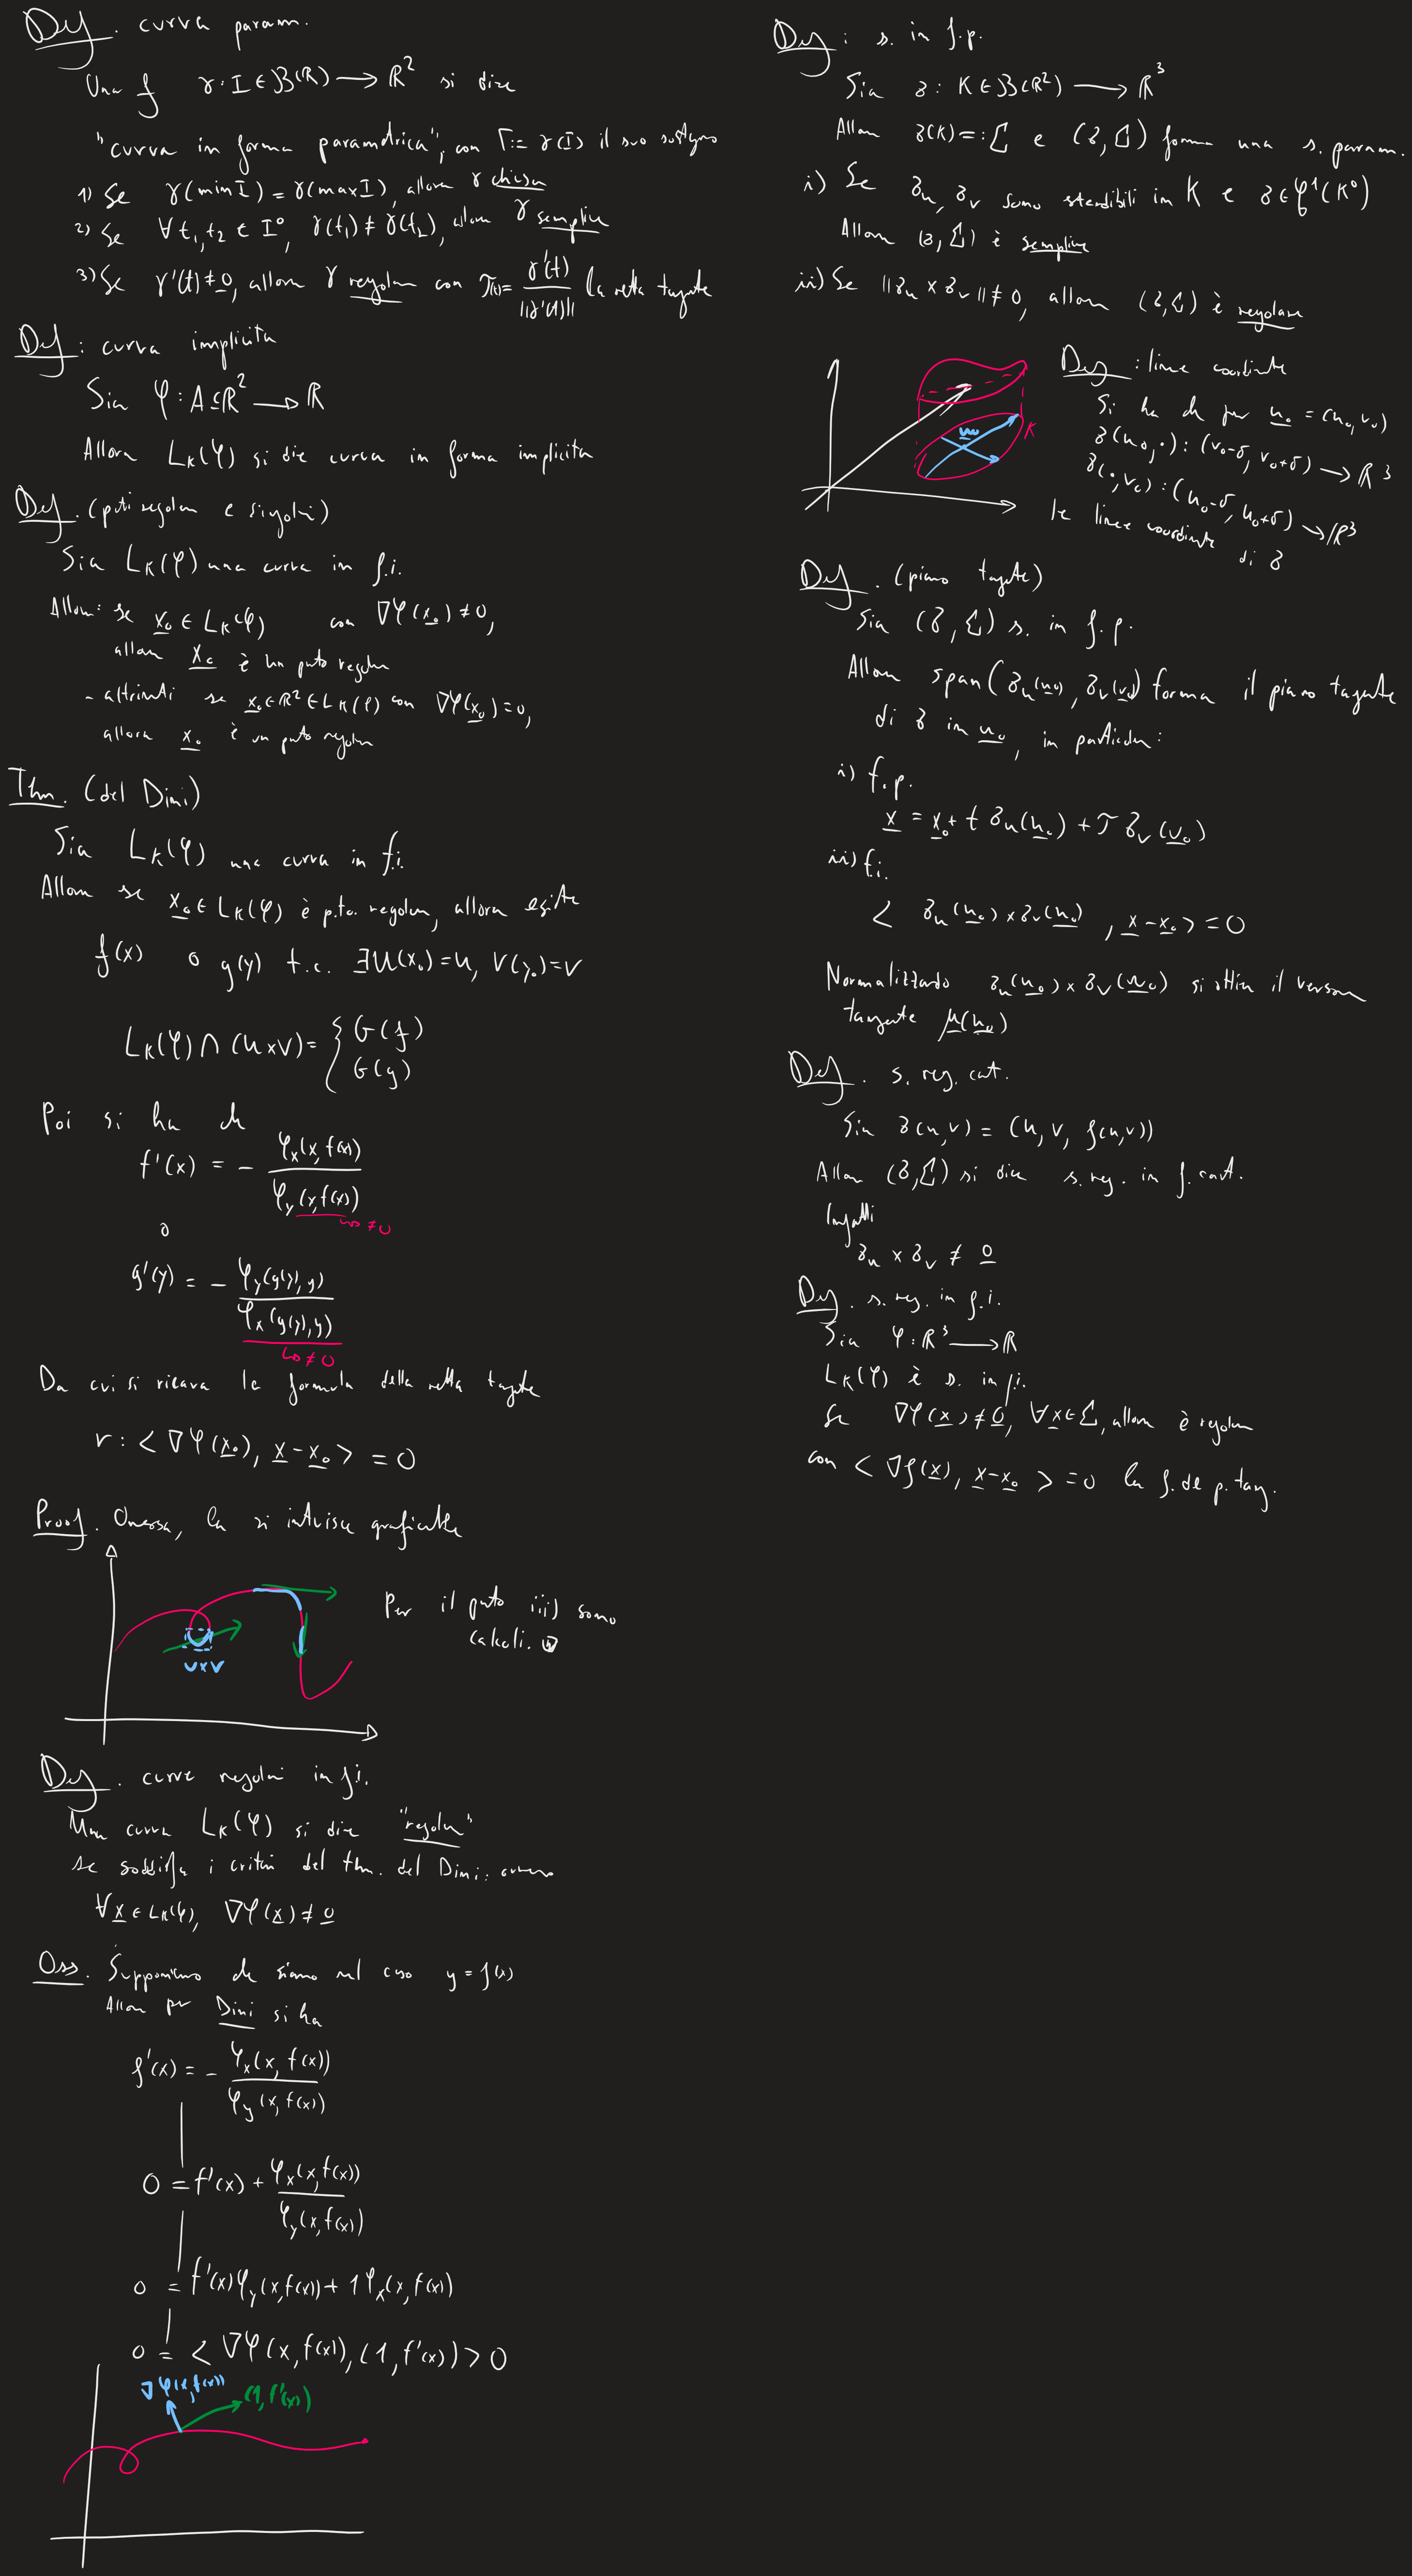 Def. curva param.
Una f γ: I ∈ B(ℝ) ⟶ ℝ² si dice
"curva in forma parametrica", con Γ := γ(I) il suo sostegno
1) Se γ(min I) = γ(max I), allora γ chiusa
2) Se ∀ t₁, t₂ ∈ I°, γ(t₁) ≠ γ(t₂), allora γ semplice
3) Se γ'(t) ≠ 0, allora γ regolare con τ(t) = γ'(t) / ||γ'(t)|| la retta tangente
Def: curva implicita
Sia φ: A ⊆ ℝ² ⟶ ℝ
Allora L_K(φ) si dice curva in forma implicita
Def. (punti regolari e singolari)
Sia L_K(φ) una curva in f.i.
Allora: se x₀ ∈ L_K(φ) con ∇φ(x₀) ≠ 0,
allora x₀ è un punto regolare
- altrimenti se x₀ ∈ ℝ² ∈ L_K(φ) con ∇φ(x₀) = 0,
allora x₀ è un punto regolare
Thm. (del Dini)
Sia L_K(φ) una curva in f.i.
Allora se x₀ ∈ L_K(φ) è p.to. regolare, allora esiste
f(x) o g(y) t.c. ∃ U(x₀) = U, V(y₀) = V
L_K(φ) ∩ (U×V) = { G(f)
G(g)
Poi si ha che
f'(x) = - φ_x(x, f(x)) / φ_y(x, f(x))
↳ ≠ 0
o
g'(y) = - φ_y(g(y), y) / φ_x(g(y), y)
↳ ≠ 0
Da cui si ricava la formula della retta tangente
r: < ∇φ(x₀), x - x₀ > = 0
Proof. Omessa, la si intuisce graficamente
U×V
Per il punto iii) sono
calcoli.
Def. curve regolari in f.i.
Una curva L_K(φ) si dice "regolare"
se soddisfa i criteri del thm. del Dini: ovvero
∀x ∈ L_K(φ), ∇φ(x) ≠ 0
Oss. Supponiamo che siamo nel caso y = f(x)
Allora per Dini si ha
f'(x) = - φ_x(x, f(x)) / φ_y(x, f(x))
0 = f'(x) + φ_x(x, f(x)) / φ_y(x, f(x))
0 = f'(x) φ_y(x, f(x)) + 1 φ_x(x, f(x))
0 = < ∇φ(x, f(x)), (1, f'(x)) > 0
∇φ(x, f(x))
(1, f'(x))
Def: s. in f.p.
Sia σ: K ∈ B(ℝ²) ⟶ ℝ³
Allora σ(K) =: Σ e (σ, Σ) forma una s. param.
i) Se σ_u, σ_v sono stendibili in K e σ ∈ C¹(K°)
Allora (σ, Σ) è semplice
ii) Se ||σ_u × σ_v|| ≠ 0, allora (σ, Σ) è regolare
u₀
K
Def: linee coordinate
Si ha che per u₀ = (u₀, v₀)
σ(u₀, ·): (v₀-δ, v₀+δ) ⟶ ℝ³
σ(·, v₀): (u₀-δ, u₀+δ) ⟶ ℝ³
le linee coordinate
di σ
Def. (piano tangente)
Sia (σ, Σ) s. in f.p.
Allora span(σ_u(u₀), σ_v(u₀)) forma il piano tangente
di σ in u₀, in particolare:
i) f.p.
x = x₀ + t σ_u(u₀) + τ σ_v(u₀)
ii) f.i.
< σ_u(u₀) × σ_v(u₀), x - x₀ > = 0
Normalizzando σ_u(u₀) × σ_v(u₀) si ottiene il versore
tangente μ(u₀)
Def. s. reg. cart.
Sia σ(u,v) = (u, v, f(u,v))
Allora (σ, Σ) si dice s. reg. in f. cart.
Infatti
σ_u × σ_v ≠ 0
Def. s. reg. in f.i.
Sia φ: ℝ³ ⟶ ℝ
L_K(φ) è s. in f.i.
Se ∇φ(x) ≠ 0, ∀x ∈ Σ, allora è regolare
con < ∇f(x), x - x₀ > = 0 la f. del p. tang.